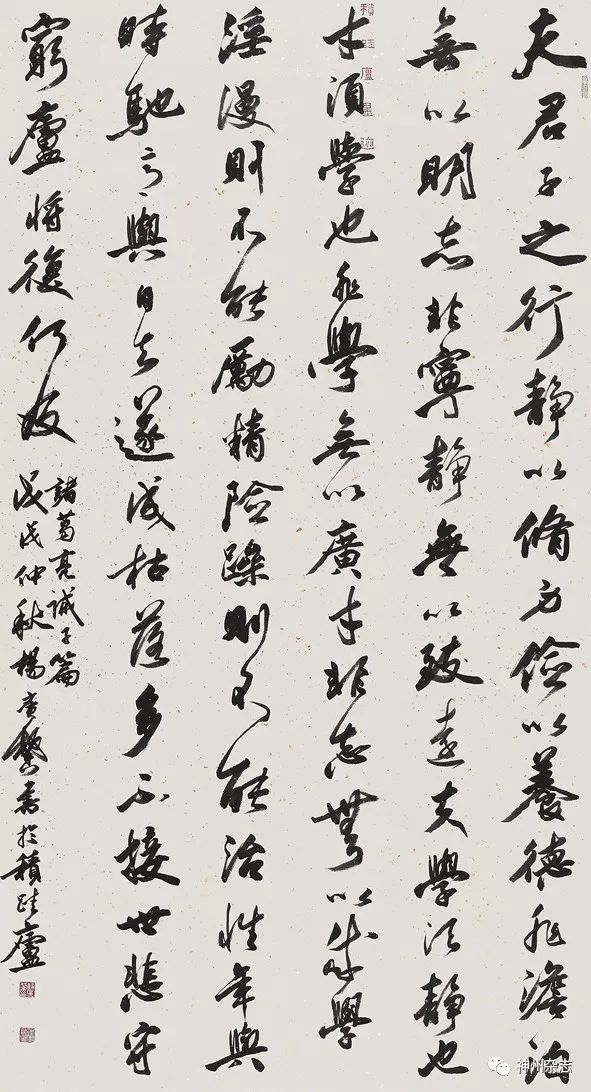 夫君子之行靜以脩身儉以養德非澹泊
無以明志非寧靜無以致遠夫學須靜也
才須學也非學無以廣才非志無以成學
淫漫則不能勵精險躁則不能治性年與
時馳意與日去遂成枯落多不接世悲守
窮廬將復何及
諸葛亮誡子篇
戊戌仲秋楊書於積跬廬
積跬廬墨迹
神州杂志